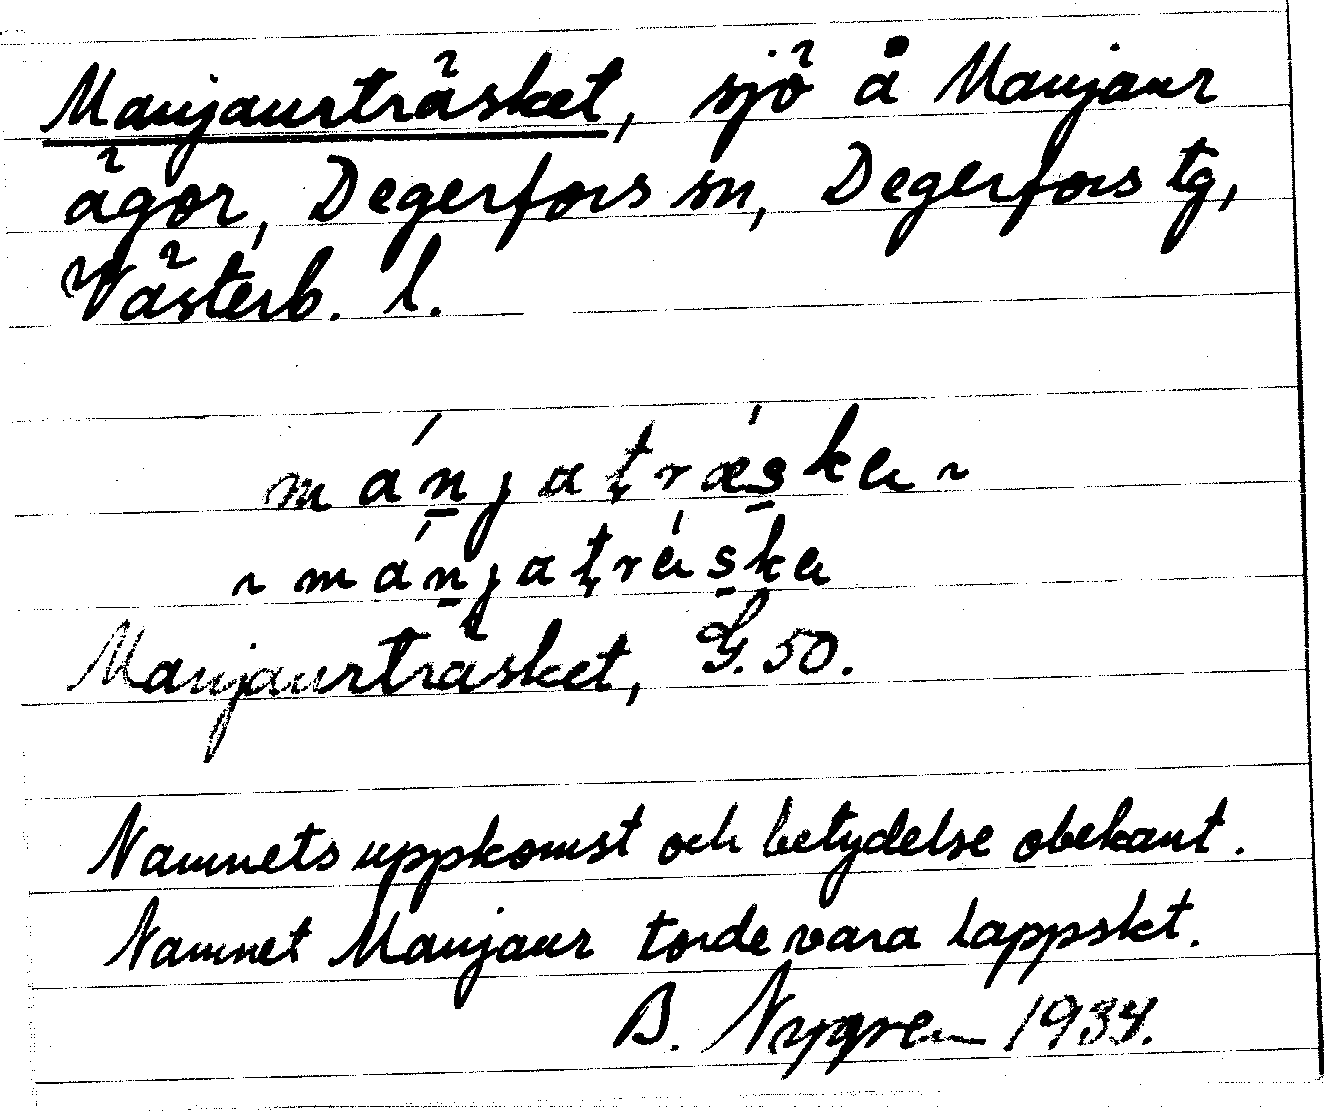 Manjaurträsket, sjö å Manjaur
ägor, Degerfors sn, Degerfors tg,
Västerb. l.
Manjaurträsket, G. 50.
Namnets uppkomst och betydelse obekant.
Namnet Manjaur torde vara lappskt.
B. Nygren 1934.